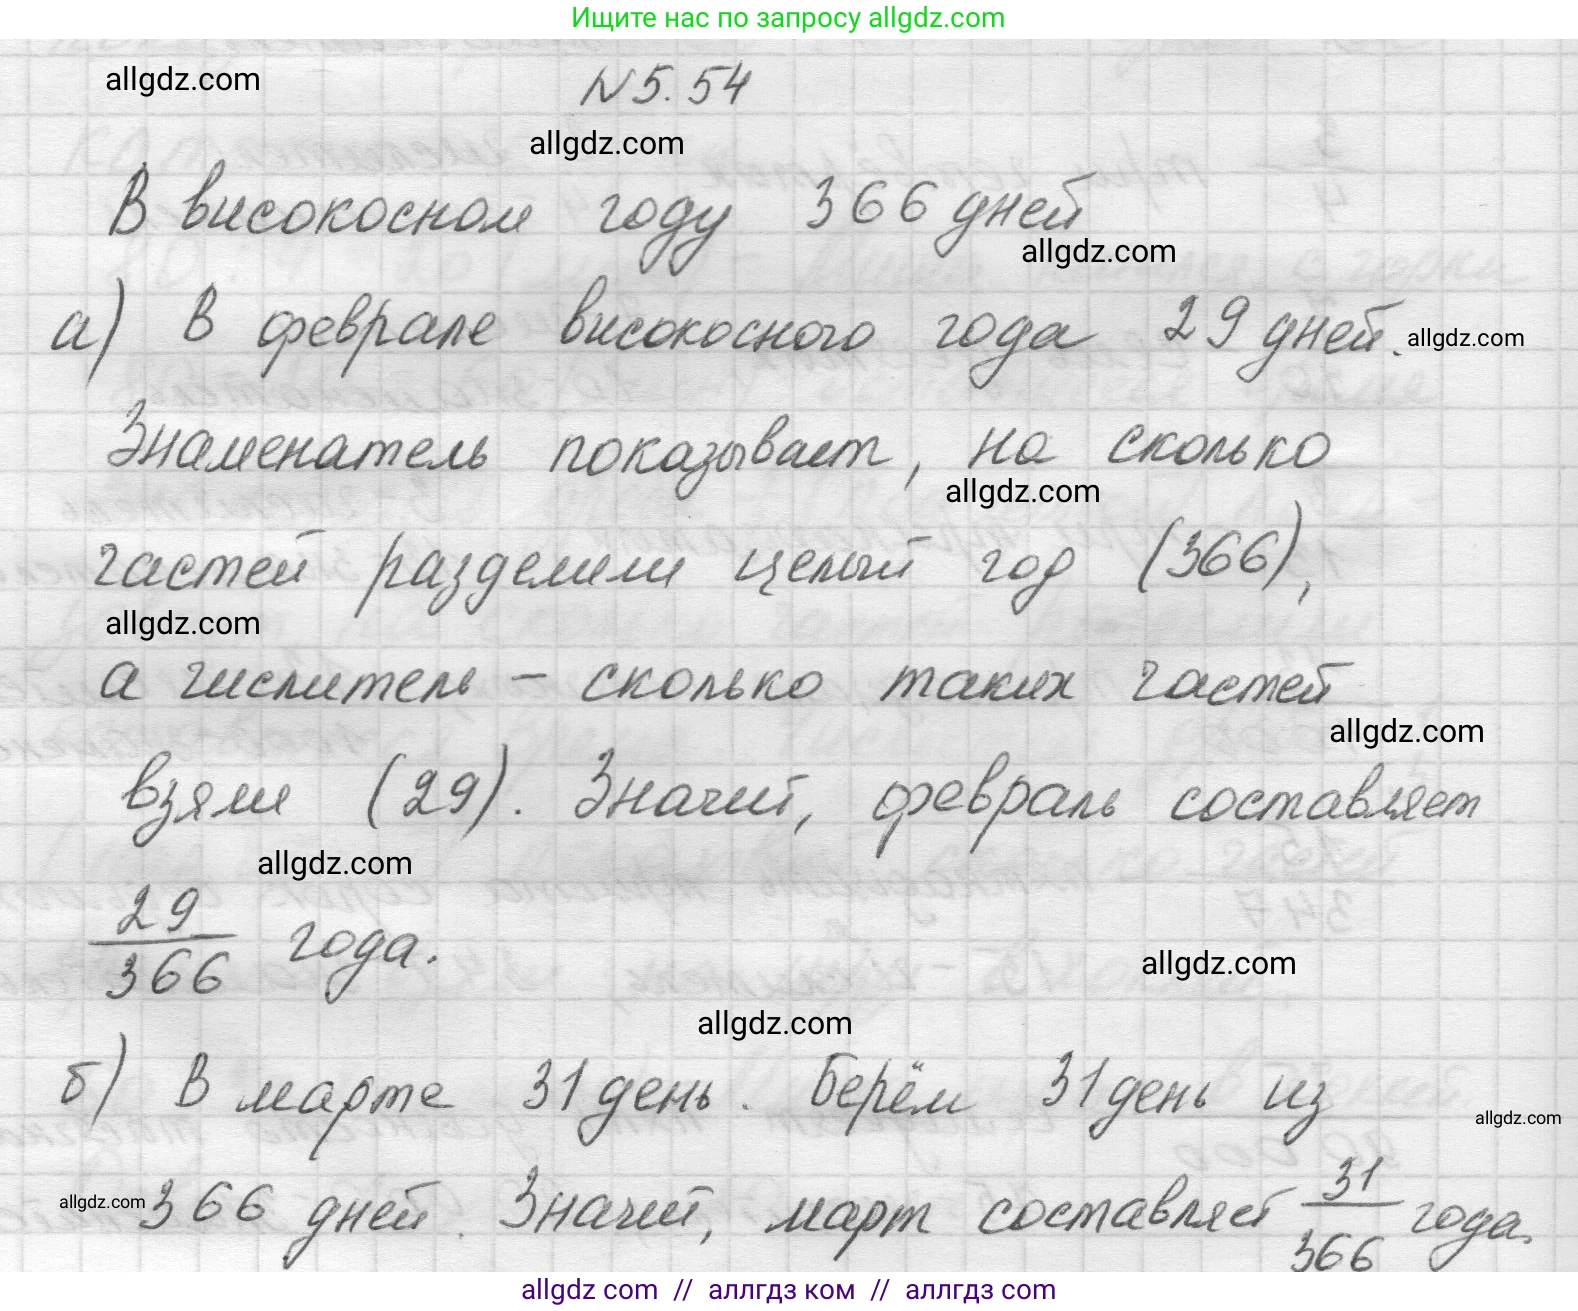 Ищите нас по запросу allgdz.com
allgdz.com
N 5.54
allgdz.com
В високосном году 366 дней
allgdz.com
а) В феврале високосного года 29 дней.
allgdz.com
Знаменатель показывает, на сколько
allgdz.com
частей разделили целый год (366),
allgdz.com
а числитель – сколько таких частей
allgdz.com
взяли (29). Значит, февраль составляет
allgdz.com
29/366 года.
allgdz.com
allgdz.com
б) В марте 31 день. Берём 31 день из
allgdz.com
allgdz.com
366 дней. Значит, март составляет 31/366 года.
allgdz.com // аллгдз ком // аллгдз com